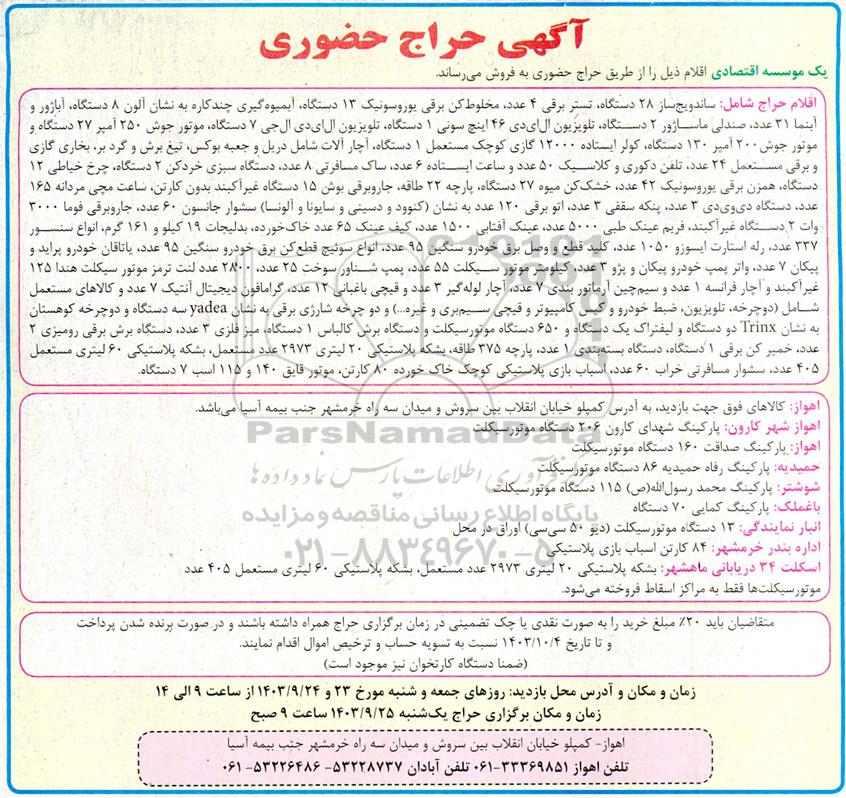 آگهی حراج حضوری
یک موسسه اقتصادی اقلام ذیل را از طریق حراج حضوری به فروش می‌رساند.
اقلام حراج شامل: ساندویچ‌ساز ۲۸ دستگاه، تستر برقی ۴ عدد، مخلوط‌کن برقی یوروسونیک ۱۳ دستگاه، آبمیوه‌گیری چندکاره به نشان آلون ۸ دستگاه، آباژور و
آبنما ۳۱ عدد، صندلی ماساژور ۲ دستگاه، تلویزیون ال‌ای‌دی ۴۶ اینچ سونی ۱ دستگاه، تلویزیون ال‌ای‌دی ال‌جی ۷ دستگاه، موتور جوش ۲۵۰ آمپر ۲۷ دستگاه و
موتور جوش ۲۰۰ آمپر ۱۳۰ دستگاه، کولر ایستاده ۱۲۰۰۰ گازی کوچک مستعمل ۱ دستگاه، آچار آلات شامل دریل و جعبه بوکس، تیغ برش و گرد بر، بخاری گازی
و برقی مستعمل ۲۴ عدد، تلفن دکوری و کلاسیک ۵۰ عدد و ساعت ایستاده ۶ عدد، ساک مسافرتی ۸ عدد، دستگاه سبزی خردکن ۲ دستگاه، چرخ خیاطی ۱۲
دستگاه، همزن برقی یوروسونیک ۴۲ عدد، خشک‌کن میوه ۲۷ دستگاه، پارچه ۲۲ طاقه، جاروبرقی بوش ۱۵ دستگاه غیرآکبند بدون کارتن، ساعت مچی مردانه ۱۶۵
عدد، دستگاه دی‌وی‌دی ۳ عدد، پنکه سقفی ۳ عدد، اتو برقی ۱۲۰ عدد به نشان (کنوود و دسینی و سایونا و آلونسا) سشوار جانسون ۶۰ عدد، جاروبرقی فوما ۳۰۰۰
وات ۲ دستگاه غیرآکبند، فریم عینک طبی ۵۰۰۰ عدد، عینک آفتابی ۱۵۰۰ عدد، کیف عینک ۶۵ عدد خاک‌خورده، بدلیجات ۱۹ کیلو و ۱۶۱ گرم، انواع سنسور
۳۳۷ عدد، رله استارت ایسوزو ۱۰۵۰ عدد، کلید قطع و وصل برق خودرو سنگین ۹۵ عدد، انواع سوئیچ قطع‌کن برق خودرو سنگین ۹۵ عدد، یاتاقان خودرو پراید و
پیکان ۷ عدد، واتر پمپ خودرو پیکان و پژو ۳ عدد، کیلومتر موتور سیکلت ۵۵ عدد، پمپ شناور سوخت ۲۵ عدد، ۲۸۰۰ عدد لنت ترمز موتور سیکلت هندا ۱۲۵
غیرآکبند و آچار فرانسه ۱ عدد و سیم‌چین آرماتور بندی ۷ عدد، آچار لوله‌گیر ۳ عدد و قیچی باغبانی ۱۲ عدد، گرامافون دیجیتال آنتیک ۷ عدد و کالاهای مستعمل
شامل (دوچرخه، تلویزیون، ضبط خودرو و کیس کامپیوتر و قیچی سیم‌بری و غیره...) و دو چرخه شارژی برقی به نشان yadea سه دستگاه و دوچرخه کوهستان
به نشان Trinx دو دستگاه و لیفتراک یک دستگاه و ۶۵۰ دستگاه موتورسیکلت و دستگاه برش کالباس ۱ دستگاه، میز فلزی ۳ عدد، دستگاه برش برقی رومیزی ۲
عدد، خمیر کن برقی ۱ دستگاه، دستگاه بسته‌بندی ۱ عدد، پارچه ۳۷۵ طاقه، بشکه پلاستیکی ۲۰ لیتری ۲۹۷۳ عدد مستعمل، بشکه پلاستیکی ۶۰ لیتری مستعمل
۴۰۵ عدد، سشوار مسافرتی خراب ۶۰ عدد، اسباب بازی پلاستیکی کوچک خاک خورده ۸۰ کارتن، موتور قایق ۱۴۰ و ۱۱۵ اسب ۷ دستگاه.
اهواز: کالاهای فوق جهت بازدید، به آدرس کمپلو خیابان انقلاب بین سروش و میدان سه راه خرمشهر جنب بیمه آسیا می‌باشد.
اهواز شهر کارون: پارکینگ شهدای کارون ۲۰۶ دستگاه موتورسیکلت
اهواز: پارکینگ صداقت ۱۶۰ دستگاه موتورسیکلت
حمیدیه: پارکینگ رفاه حمیدیه ۸۶ دستگاه موتورسیکلت
شوشتر: پارکینگ محمد رسول‌الله(ص) ۱۱۵ دستگاه موتورسیکلت
باغملک: پارکینگ کمایی ۷۰ دستگاه
انبار نمایندگی: ۱۳ دستگاه موتورسیکلت (دیو ۵۰ سی‌سی) اوراق در محل
اداره بندر خرمشهر: ۸۴ کارتن اسباب بازی پلاستیکی
اسکلت ۳۴ دریابانی ماهشهر: بشکه پلاستیکی ۲۰ لیتری ۲۹۷۳ عدد مستعمل، بشکه پلاستیکی ۶۰ لیتری مستعمل ۴۰۵ عدد
موتورسیکلت‌ها فقط به مراکز اسقاط فروخته می‌شود.
ParsNamadData
مرکز فرآوری اطلاعات پارس نماد داده‌ها
پایگاه اطلاع رسانی مناقصه و مزایده
۰۲۱-۸۸۳۴۹۶۷۰-۵
متقاضیان باید ۲۰٪ مبلغ خرید را به صورت نقدی یا چک تضمینی در زمان برگزاری حراج همراه داشته باشند و در صورت برنده شدن پرداخت
و تا تاریخ ۱۴۰۳/۱۰/۴ نسبت به تسویه حساب و ترخیص اموال اقدام نمایند.
(ضمنا دستگاه کارتخوان نیز موجود است)
زمان و مکان و آدرس محل بازدید: روزهای جمعه و شنبه مورخ ۲۳ و ۱۴۰۳/۹/۲۴ از ساعت ۹ الی ۱۴
زمان و مکان برگزاری حراج یک‌شنبه ۱۴۰۳/۹/۲۵ ساعت ۹ صبح
اهواز- کمپلو خیابان انقلاب بین سروش و میدان سه راه خرمشهر جنب بیمه آسیا
تلفن اهواز ۳۳۳۶۹۸۵۱-۰۶۱ تلفن آبادان ۵۳۲۲۸۷۳۷- ۵۳۲۲۶۴۸۶-۰۶۱